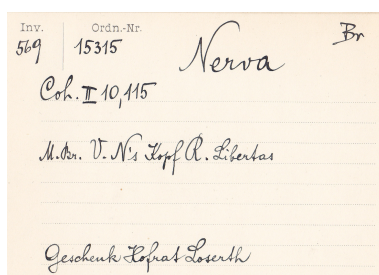 Inv. Ordn.-Nr.
569 15315 Nerva Br
Coh. II 10,115
M.Br. V. N's Kopf R. Libertas
Geschenk Hofrat Loserth